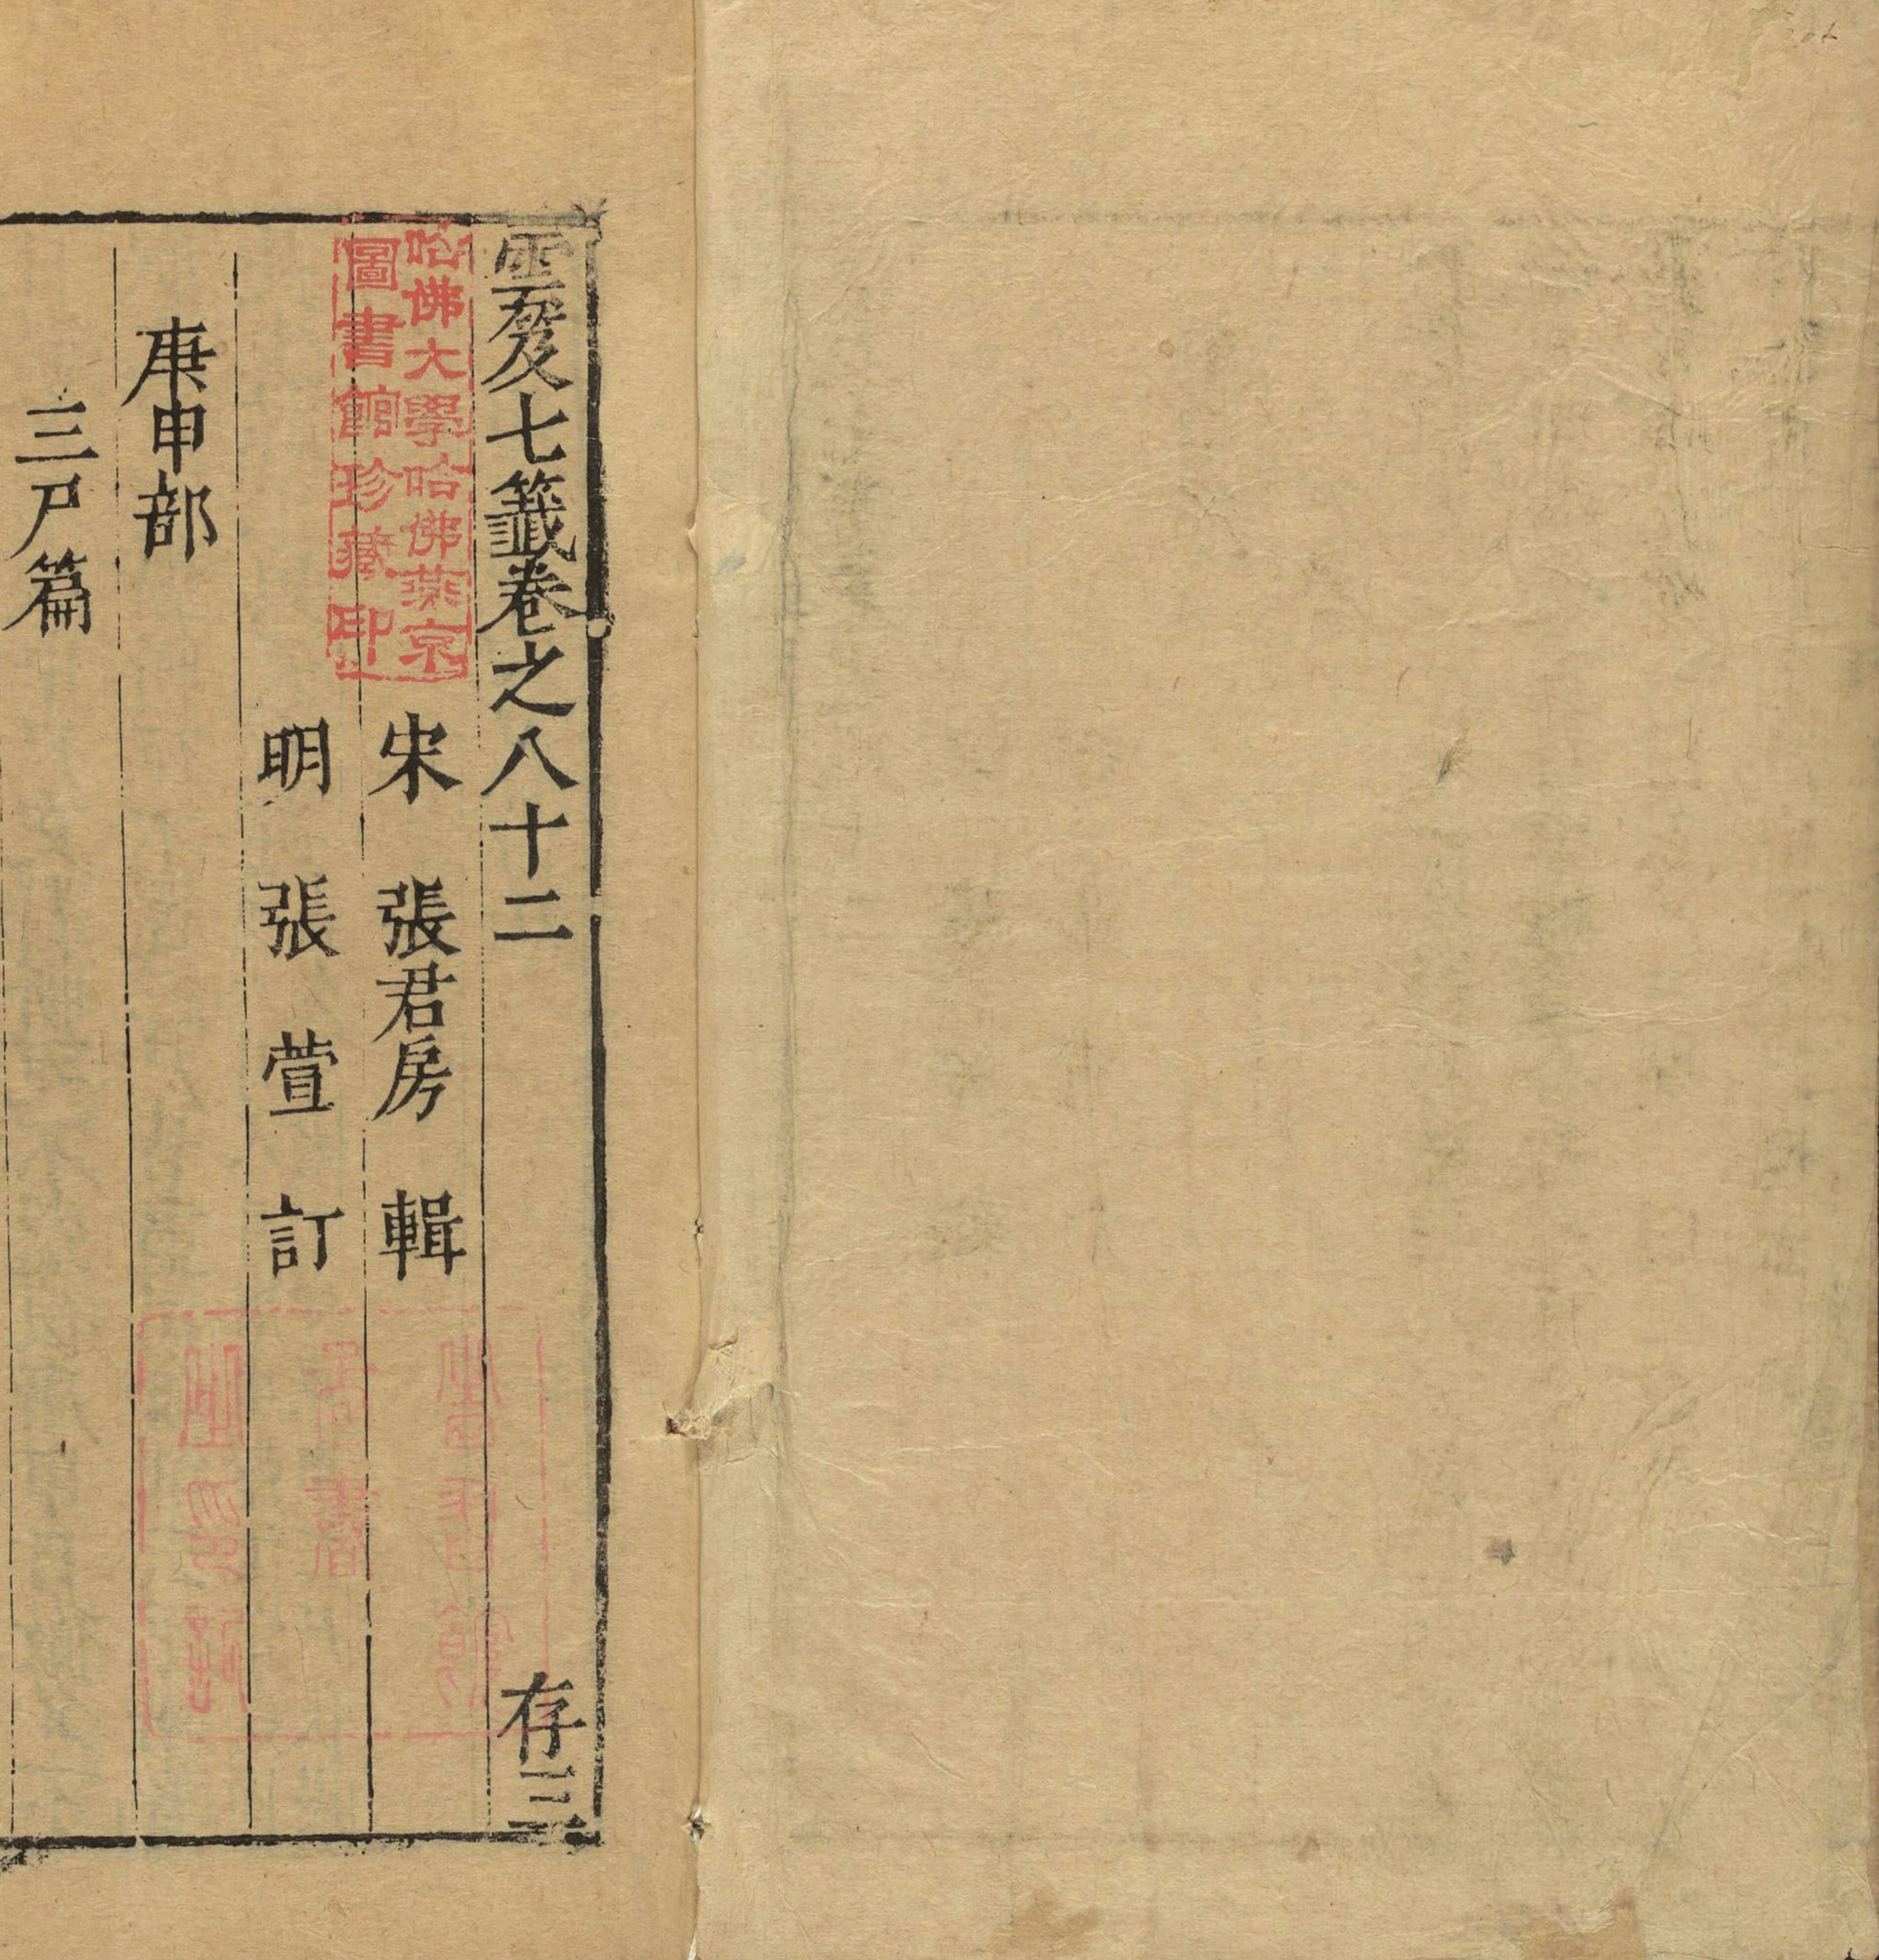 雲笈七籤卷之八十二
存三
宋 張君房 輯
明 張萱 訂
庚申部
三尸篇
哈佛大學哈佛燕京
圖書館珍藏印